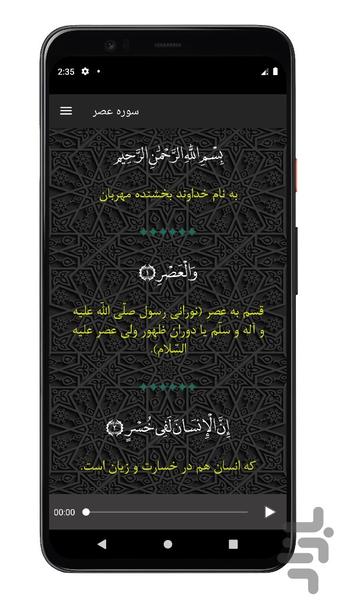 2:35
سوره عصر
بِسْمِ اللَّهِ الرَّحْمَٰنِ الرَّحِيمِ
به نام خداوند بخشنده مهربان
وَالْعَصْرِ ﴿١﴾
قسم به عصر (نورانی رسول صلّی اللّه علیه
و آله و سلّم یا دوران ظهور ولی عصر علیه
السّلام).
إِنَّ الْإِنْسَانَ لَفِي خُسْرٍ ﴿٢﴾
که انسان هم در خسارت و زیان است.
00:00
بازار